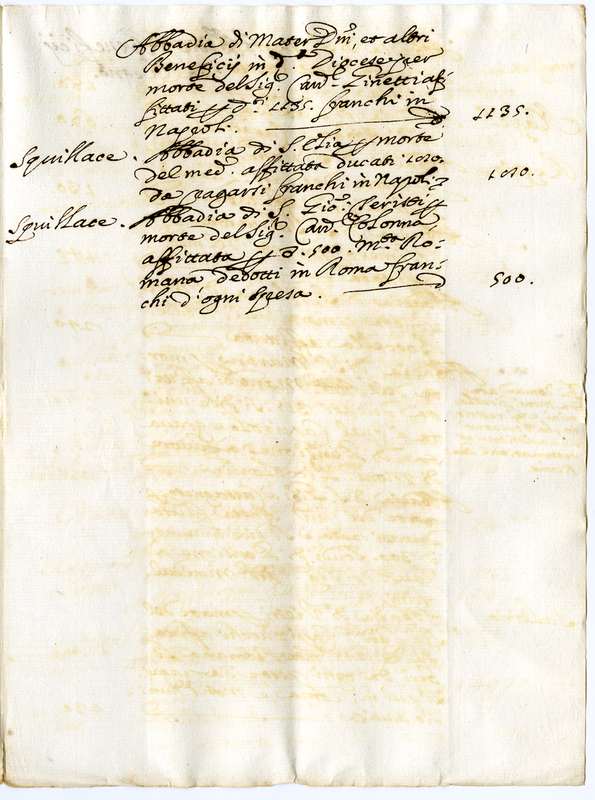 Abbadia di Mater Dni, et altri
Beneficij in d.a Diocese per
morte del Sig.r Card. Ginetti af=
fittati p d.i 1135. franchi in
Napoli. 1135.
Squillace. Abbadia di S. Elia p morte
del med.o affittata ducati 1010.
da pagarsi franchi in Napoli 1010.
Squillace. Abbadia di S. Gio: Teristi p
morte del Sig.r Card. Colonna
affittata p d. 500. m.ta Ro=
mana ddotti in Roma fran=
chi d'ogni spesa. 500.